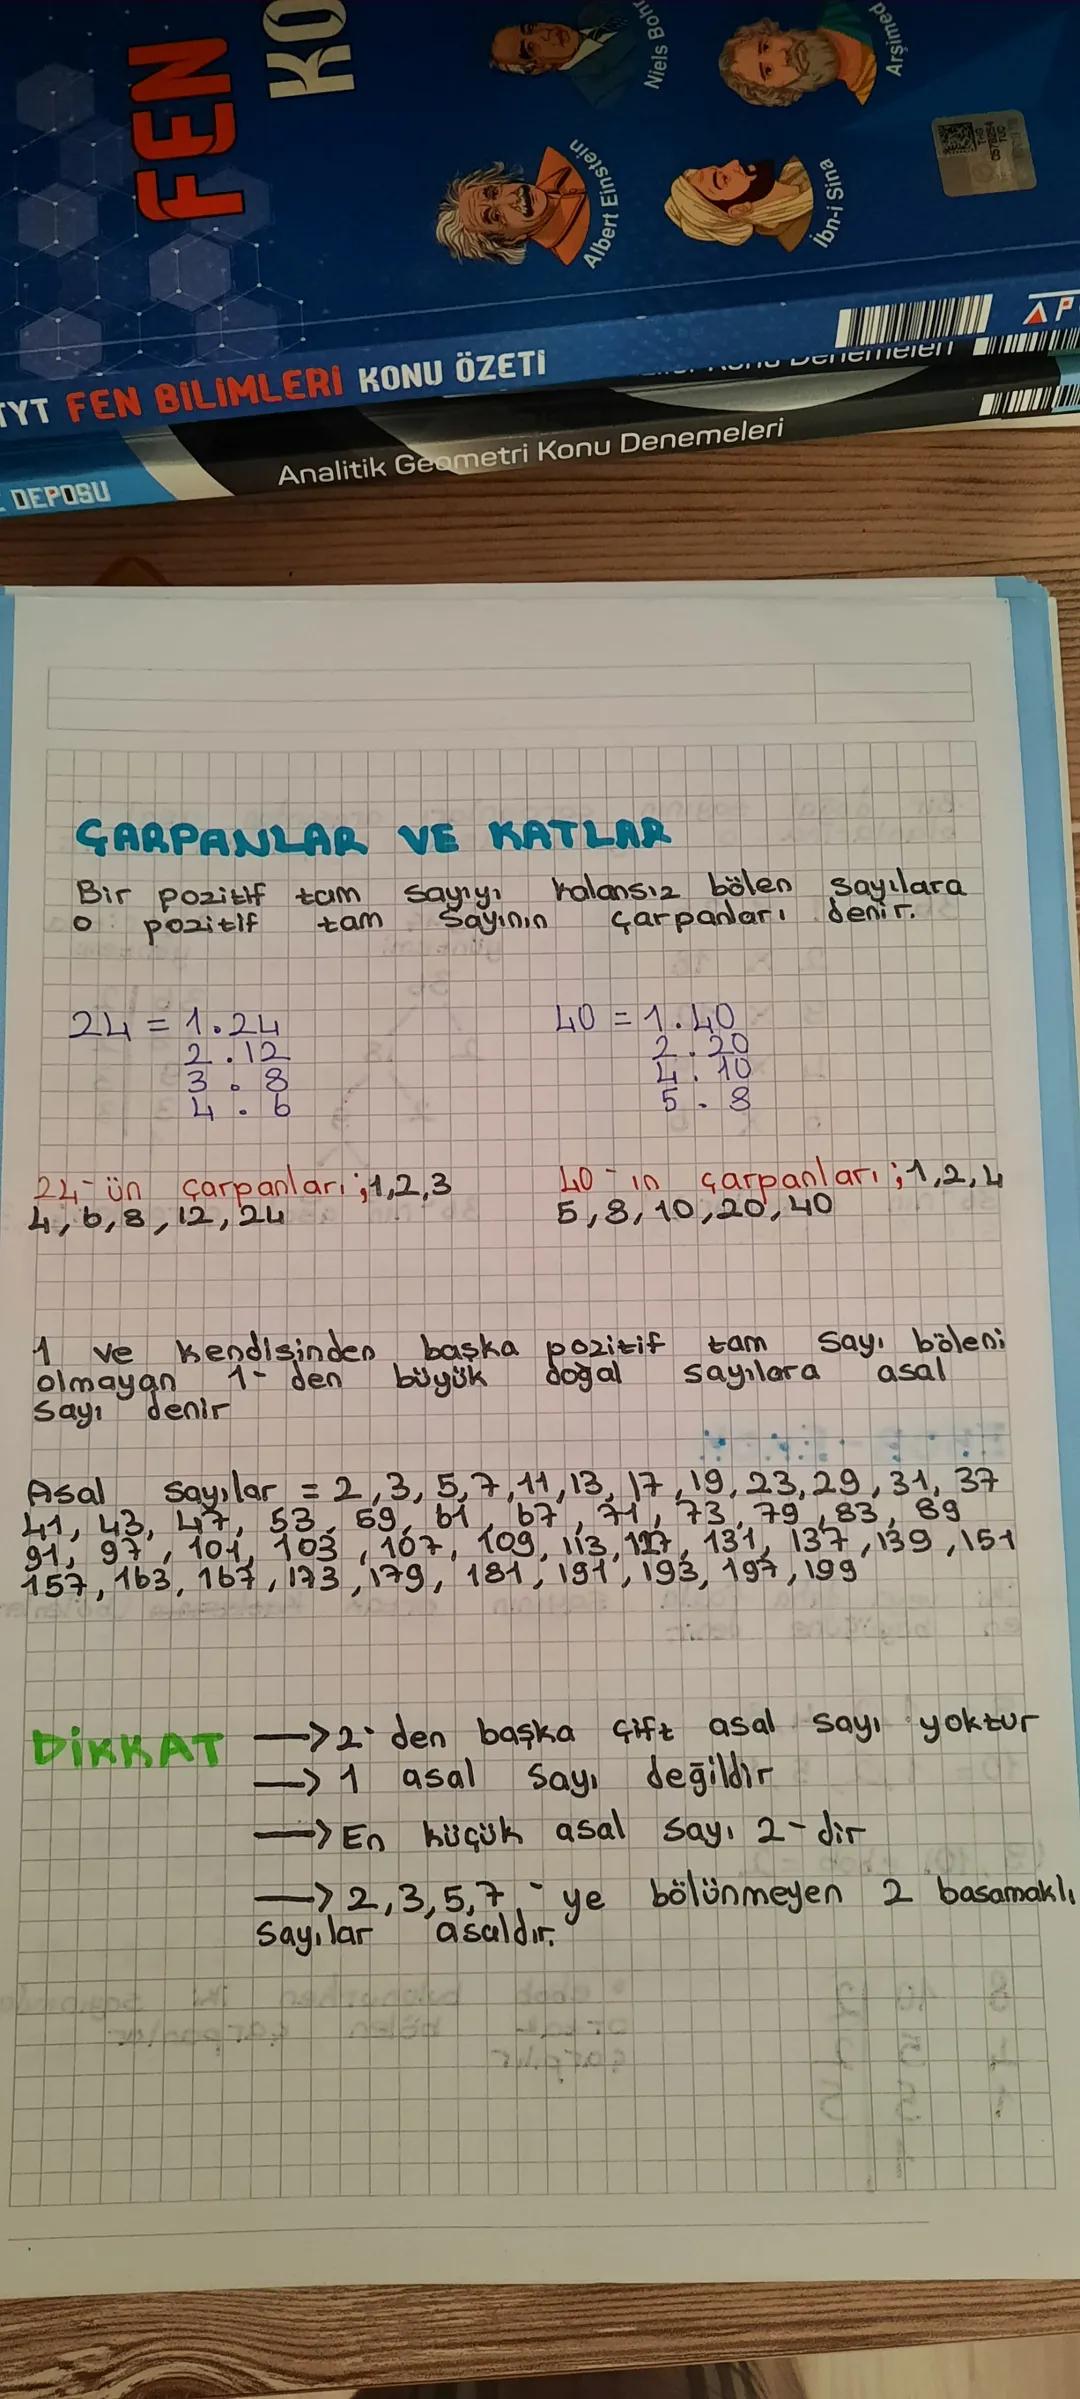 FEN
KO
Niels Bohr
Arşimed
Albert Einstein
İbn-i Sina
TYT FEN BİLİMLERİ KONU ÖZETİ
Konu Denemeleri
Analitik Geometri Konu Denemeleri
DEPOSU
ÇARPANLAR VE KATLAR
Bir pozitif tam sayıyı kalansız bölen sayılara
o pozitif tam sayının çarpanları denir.
24 = 1.24
2.12
3.8
4.6
40 = 1.40
2.20
4.10
5.8
24-ün çarpanları;1,2,3
4,6,8,12,24
40-ın çarpanları;1,2,4
5,8,10,20,40
1 ve kendisinden başka pozitif tam sayı böleni
olmayan 1-den büyük doğal sayılara asal
sayı denir
Asal sayılar = 2,3,5,7,11,13,17,19,23,29,31,37
41, 43, 47, 53, 59, 61, 67, 71, 73, 79, 83, 89
91, 97, 101, 103, 107, 109, 113, 127, 131, 137, 139, 151
157, 163, 167, 173, 179, 181, 191, 193, 197, 199
DİKKAT → 2-den başka çift asal sayı yoktur
→ 1 asal sayı değildir
→ En küçük asal sayı 2-dir
→ 2,3,5,7-ye bölünmeyen 2 basamaklı
sayılar asaldır.